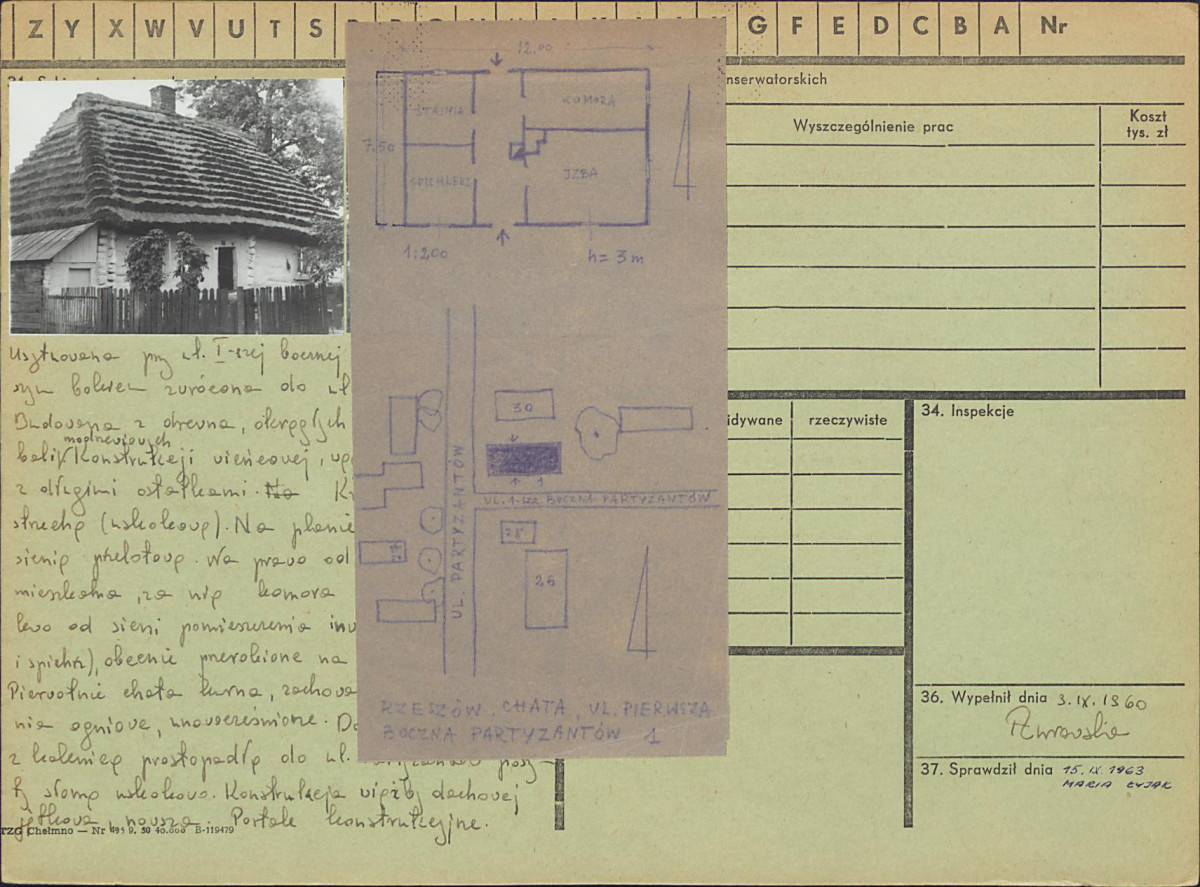 Z Y X W V U T S G F E D C B A Nr
nserwatorskich
Wyszczególnienie prac
Koszt
tys. zł
idywane
rzeczywiste
34. Inspekcje
36. Wypełnił dnia 3.IX.1960
37. Sprawdził dnia 15.IX.1963
MARIA
12.00
STAJNIA
KOMORA
7.50
SPICHLERZ
IZBA
1:200
h= 3 m
30
1
UL. 1-sza BOCZNA PARTYZANTÓW
UL. PARTYZANTÓW
28
27
26
RZESZÓW. CHATA, UL. PIERWSZA
BOCZNA PARTYZANTÓW 1
Usytuowana przy ul. I-szej bocznej
bokiem zwrócona do ul
Budowana z drewna, okrągłych
modrzewiowych
bali. Konstrukcji wieńcowej,
z długimi ostatkami.
strzechą (uskokową). Na planie
sienią przelotową. Na prawo od
mieszkalna, za nią komora
lewo od sieni pomieszczenia inw
i spichrz), obecnie przerobione na
Pierwotnie chata kurna, zachowa
nia ogniowe, unowocześnione.
z kalenicą prostopadłą do ul.
ty słomą uskokowo. Konstrukcja więźby dachowej
jętkowa, nowsza. Portale konstrukcyjne.
Chełmno — Nr 40.000 B-119479